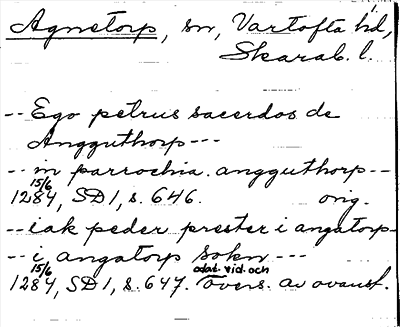 Agnetorp, sn, Vartofta hd,
Skarab. l.
-- Ego petrus sacerdos de
Angguthorp ---
-- in parrochia angguthorp --
15/6
1284, SD 1, s. 646. orig.
-- iak peder prester i angatorp -
-- i angatorp sokn ---
15/6 odat. vid. och
1284, SD 1, s. 647. övers. av ovanst.